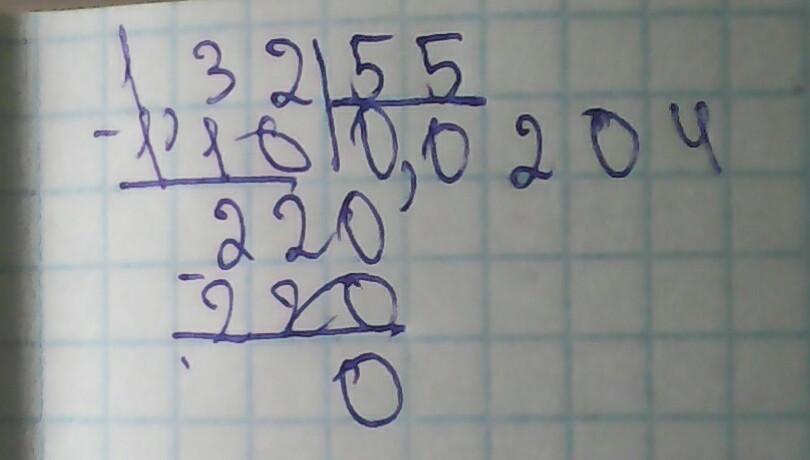 1,32|55
-110|0,0204
220
-220
0